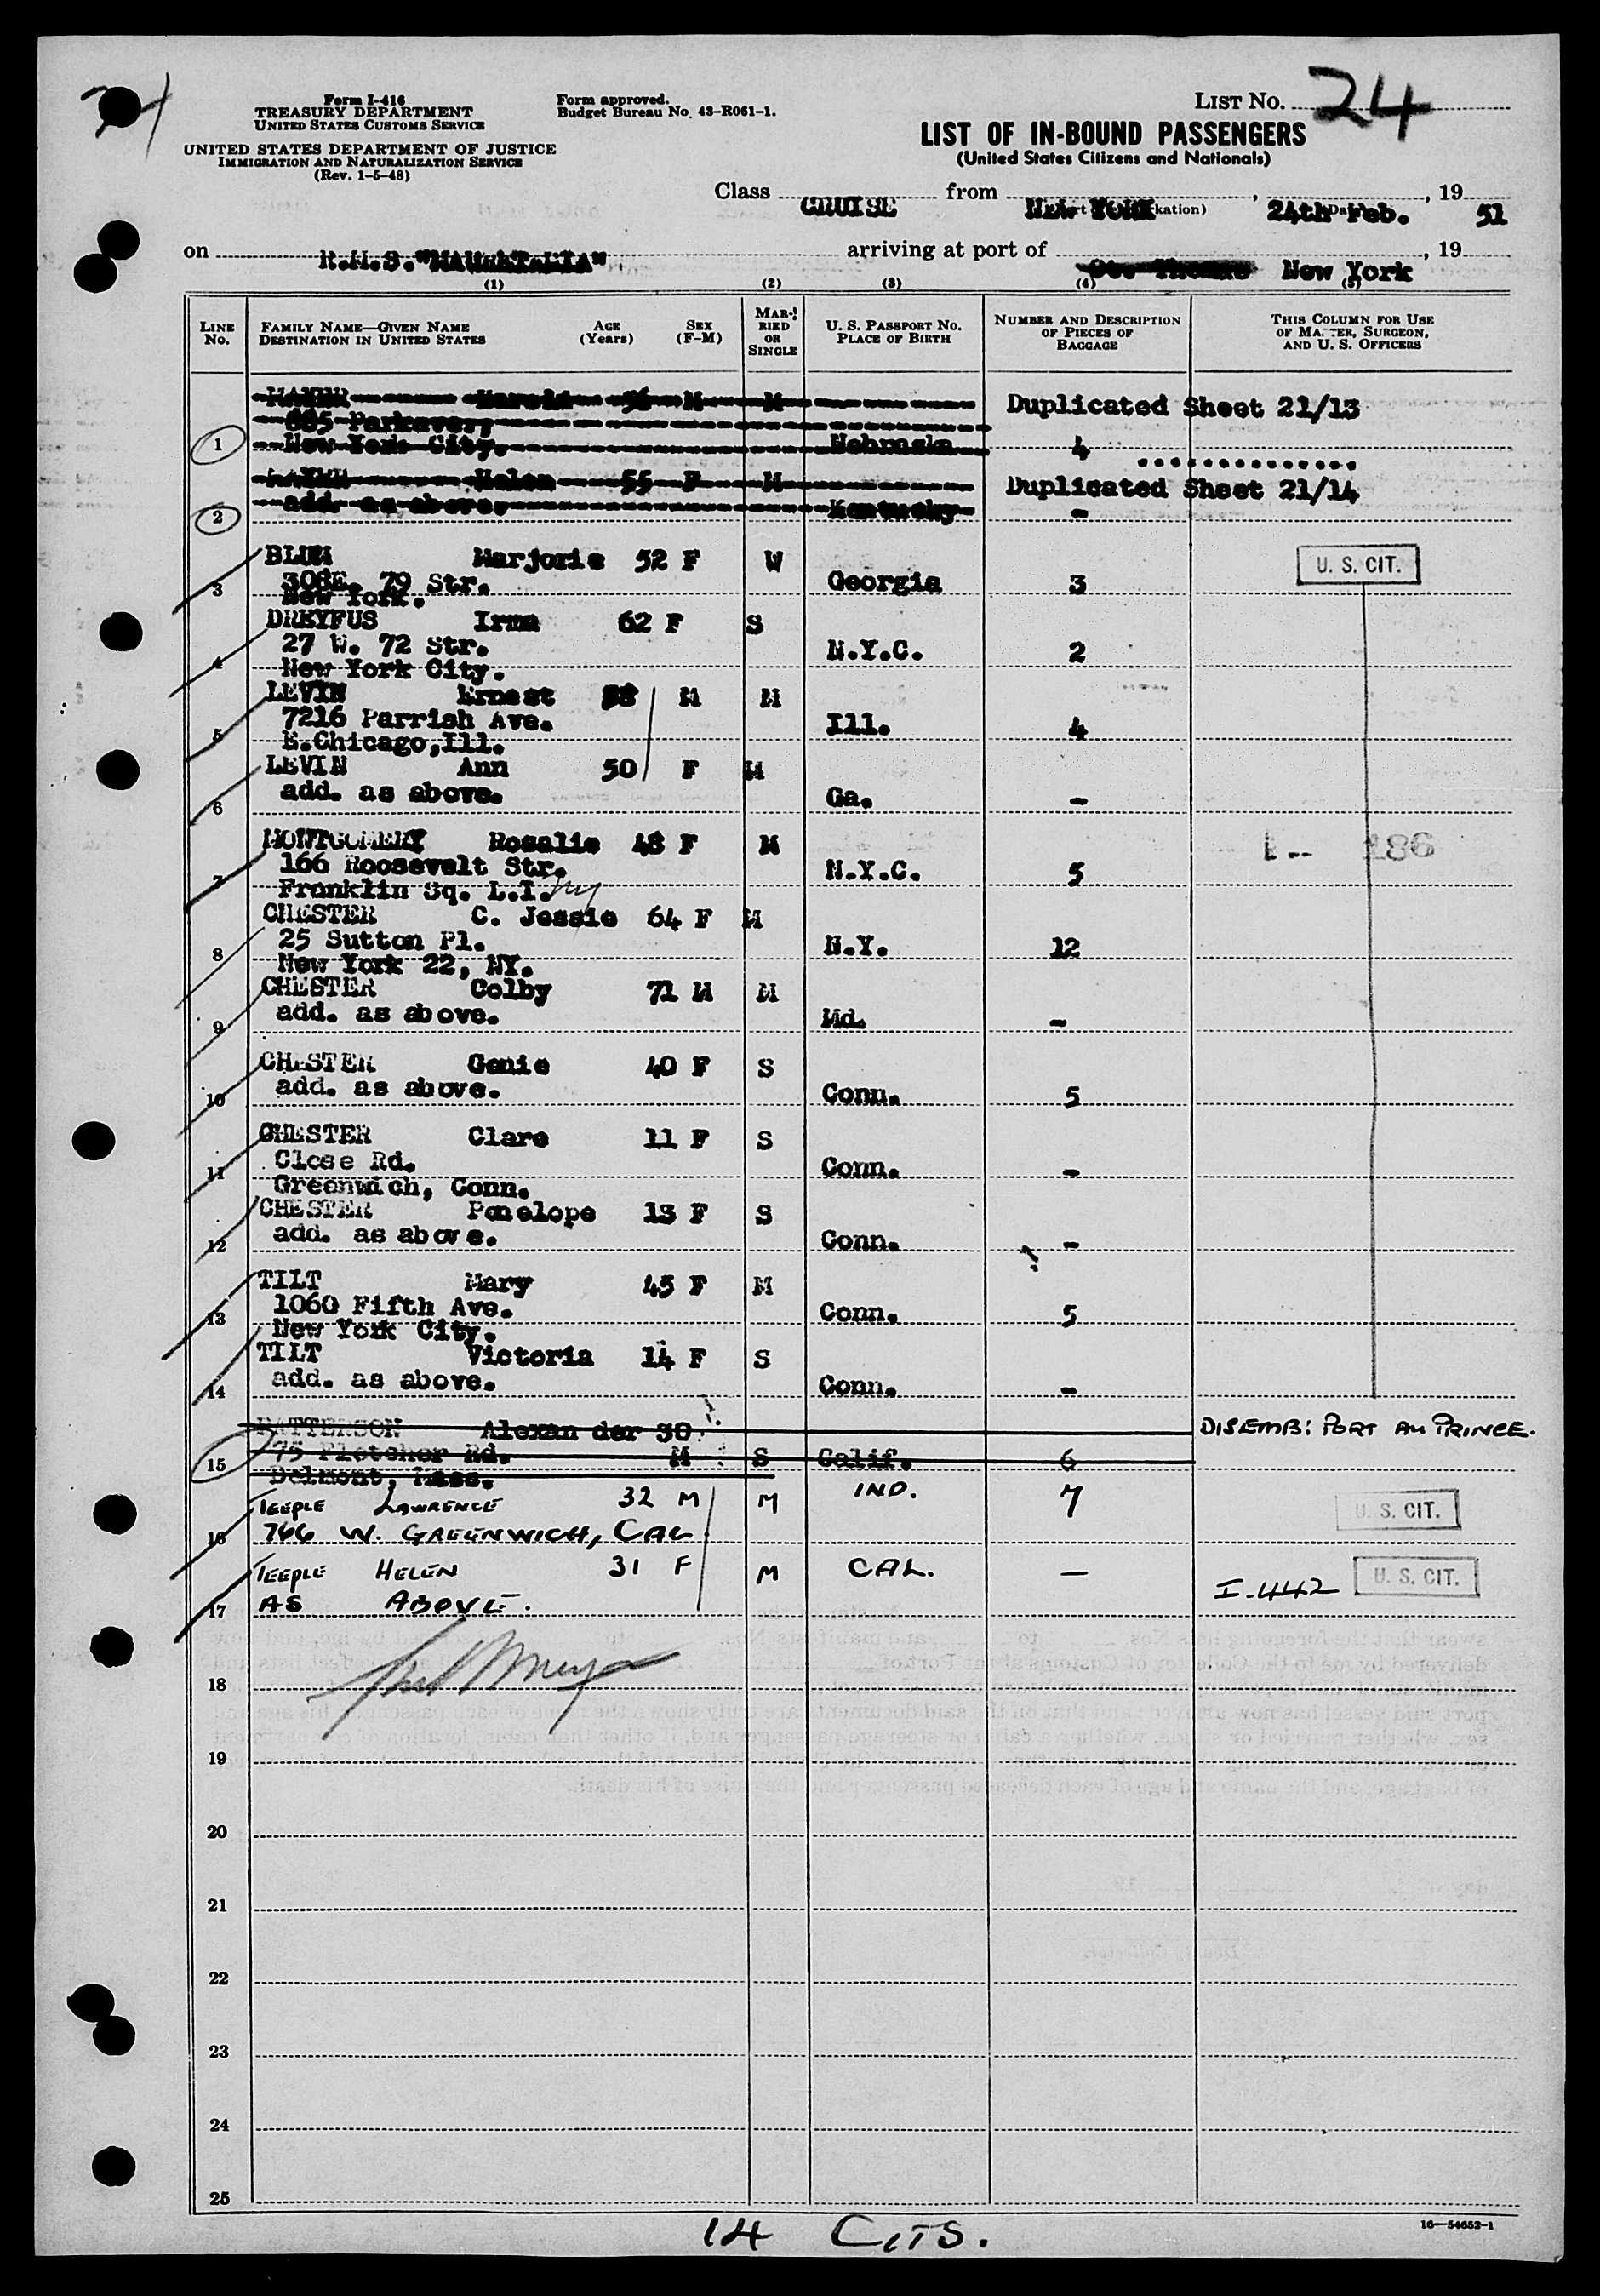 Form I-416
TREASURY DEPARTMENT
UNITED STATES CUSTOMS SERVICE
UNITED STATES DEPARTMENT OF JUSTICE
IMMIGRATION AND NATURALIZATION SERVICE
(Rev. 1-5-48)
Form approved.
Budget Bureau No. 43-R061-1.
LIST No. 24
LIST OF IN-BOUND PASSENGERS
(United States Citizens and Nationals)
Class CRUISE from NEW YORK, 24th Feb., 19 51
on R.M.S. "MAURETANIA" arriving at port of St. Thomas New York, 19
(1) (2) (3) (4) (5)
LINE No. FAMILY NAME—GIVEN NAME DESTINATION IN UNITED STATES AGE (Years) SEX (F-M) MARRIED OR SINGLE U. S. PASSPORT No. PLACE OF BIRTH NUMBER AND DESCRIPTION OF PIECES OF BAGGAGE THIS COLUMN FOR USE OF MASTER, SURGEON, AND U. S. OFFICERS
Harold 56 M M Duplicated Sheet 21/13
885 Parkave.,
1 New York City. Nebraska 4
Helen 55 F M Duplicated Sheet 21/14
2 add. as above. Kentucky -
BLUM Marjorie 52 F W U. S. CIT.
3 308E. 79 Str. Georgia 3
New York.
DREYFUS Irma 62 F S
4 27 W. 72 Str. N.Y.C. 2
New York City.
LEVIN Ernest M M
5 7216 Parrish Ave. Ill. 4
E.Chicago,Ill.
LEVIN Ann 50 F M
6 add. as above. Ga. -
MONTGOMERY Rosalie 48 F M 186
7 166 Roosevelt Str. N.Y.C. 5
Franklin Sq. L.I. NY
CHESTER C. Jessie 64 F M
8 25 Sutton Pl. N.Y. 12
New York 22, NY.
CHESTER Colby 71 M M
9 add. as above. Md. -
CHESTER Genie 40 F S
10 add. as above. Conn. 5
CHESTER Clare 11 F S
11 Close Rd. Conn. -
Greenwich, Conn.
CHESTER Penelope 13 F S
12 add. as above. Conn. -
TILT Mary 45 F M
13 1060 Fifth Ave. Conn. 5
New York City.
TILT Victoria 14 F S
14 add. as above. Conn. -
PATTERSON Alexan der 30 DISEMB: PORT AU PRINCE.
15 75 Fletcher Rd. M S Calif. 6
Belmont, Mass.
TEEPLE LAWRENCE 32 M M IND. 7 U. S. CIT.
16 766 W. GREENWICH, CAL
TEEPLE HELEN 31 F M CAL. — I-442 U. S. CIT.
17 AS ABOVE.
18
19
20
21
22
23
24
25
14 CITS.
16—54652-1